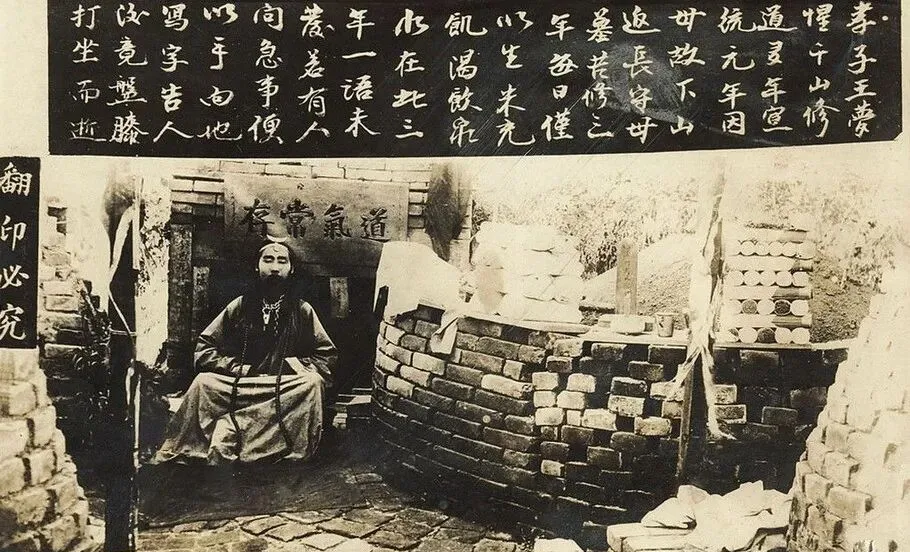 孝子王夢
惺千山修
道多年宣
統元年因
母故下山
返長守母
墓苦修三
年每日僅
以生米充
飢渴飲泉
水在此三
年一語未
發若有人
问急事便
以手向地
寫字告人
後竟盤膝
打坐而逝
道氣常存
翻印必究